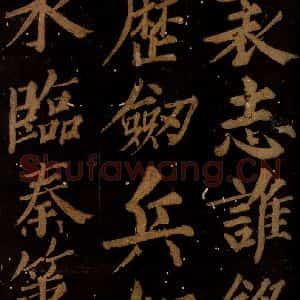 表志誰
歷劒兵
臨秦第
Shufawang.cn